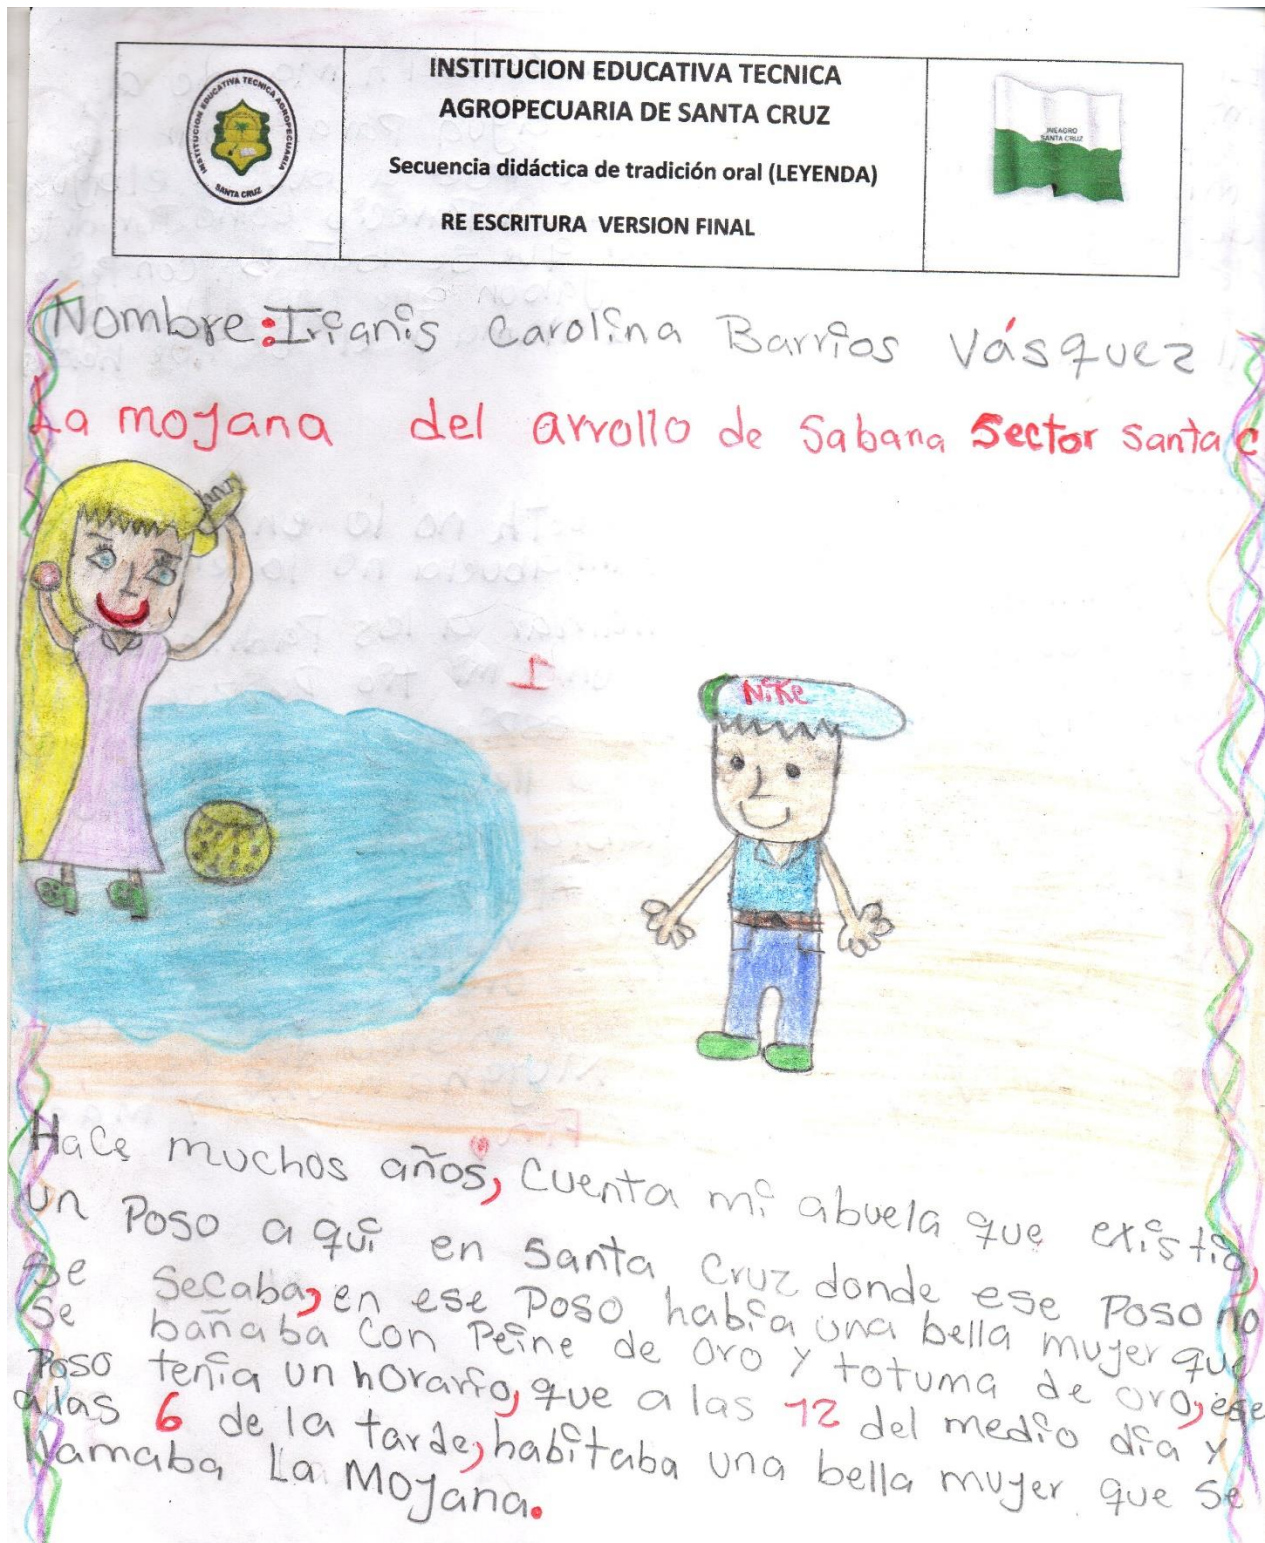 INSTITUCION EDUCATIVA TECNICA
AGROPECUARIA DE SANTA CRUZ
Secuencia didáctica de tradición oral (LEYENDA)
RE ESCRITURA VERSION FINAL
INSTITUCION EDUCATIVA TECNICA AGROPECUARIA
SANTA CRUZ
INEAGRO
SANTA CRUZ
Nombre: Irianis Carolina Barrios Vásquez
La mojana del arrollo de Sabana Sector Santa C
I
NiKe
Hace muchos años, Cuenta mi abuela que existia,
un Poso aquí en Santa Cruz donde ese Poso no
se secaba, en ese Poso había una bella mujer que
se bañaba con Peine de oro y totuma de oro, ese
Poso tenía un horario, que a las 12 del medio día y
a las 6 de la tarde, habitaba una bella mujer que se
llamaba La Mojana.